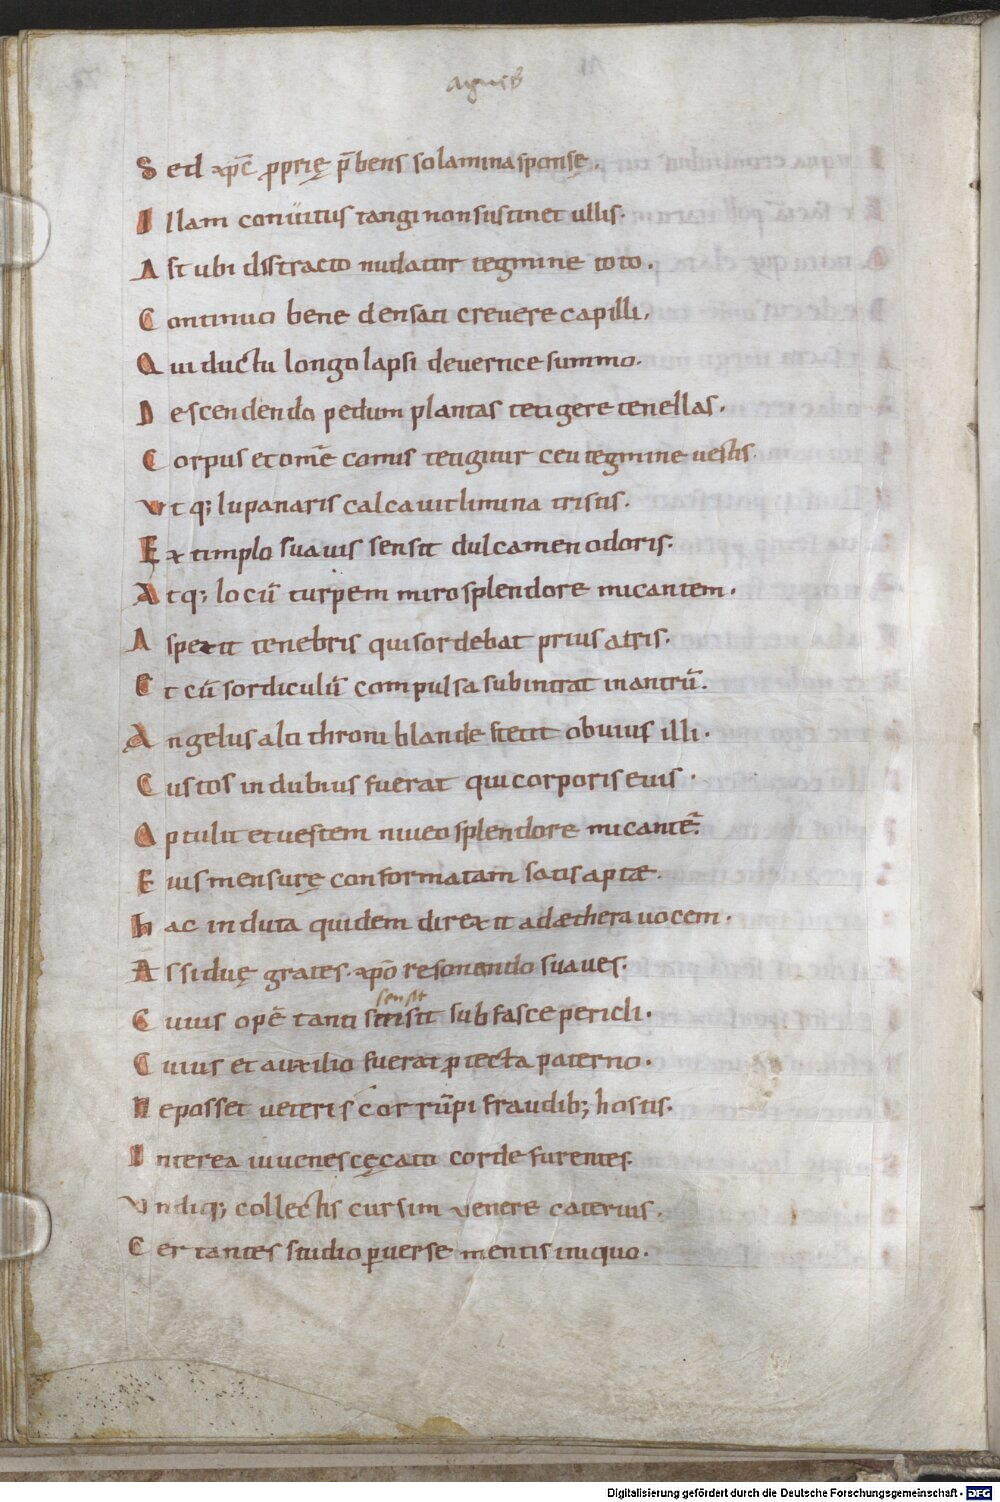 agnes
Sed xp̄c ꝓprię p̄bens solamina sponsę.
Illam conuitus tangi non sustinet ullis.
Ast ubi distracto nudatur tegmine toto.
Continuo bene densati creuere capilli.
Qui ductu longo lapsi de uertice summo.
Descendendo pedum plantas tetigere tenellas.
Corpus et om̄e comis tegitur ceu tegmine uestis.
Vtq; lupanaris calcauit limina tristis.
Extimplo suauis sensit dulcamen odoris.
Atq; locū turpem miro splendore micantem.
Asperit tenebris qui sordebat prius atris.
Et cū sordiculū compulsa subintrat in antrū.
Angelus alti throni blande stetit obuius illi.
Custos indubius fuerat qui corporis eius.
Aptulit et uestem niueo splendore micantē.
Eius mensurę conformatam satis aptæ.
hac induta quidem direxit ad æthera uocem.
Assiduę grates xpō resonando suaues.
sensit
Cuius opē tanti sensit sub fasce pericli.
Cuius et auxilio fuerat ꝓtecta paterno.
Ne posset ueteris corrūpi fraudib; hostis.
Interea iuuenes cęcati corde furentes.
Vndiq; collectis cursim venere cateruis.
Certantes studio ꝑuerse mentis iniquo.
Digitalisierung gefördert durch die Deutsche Forschungsgemeinschaft - DFG